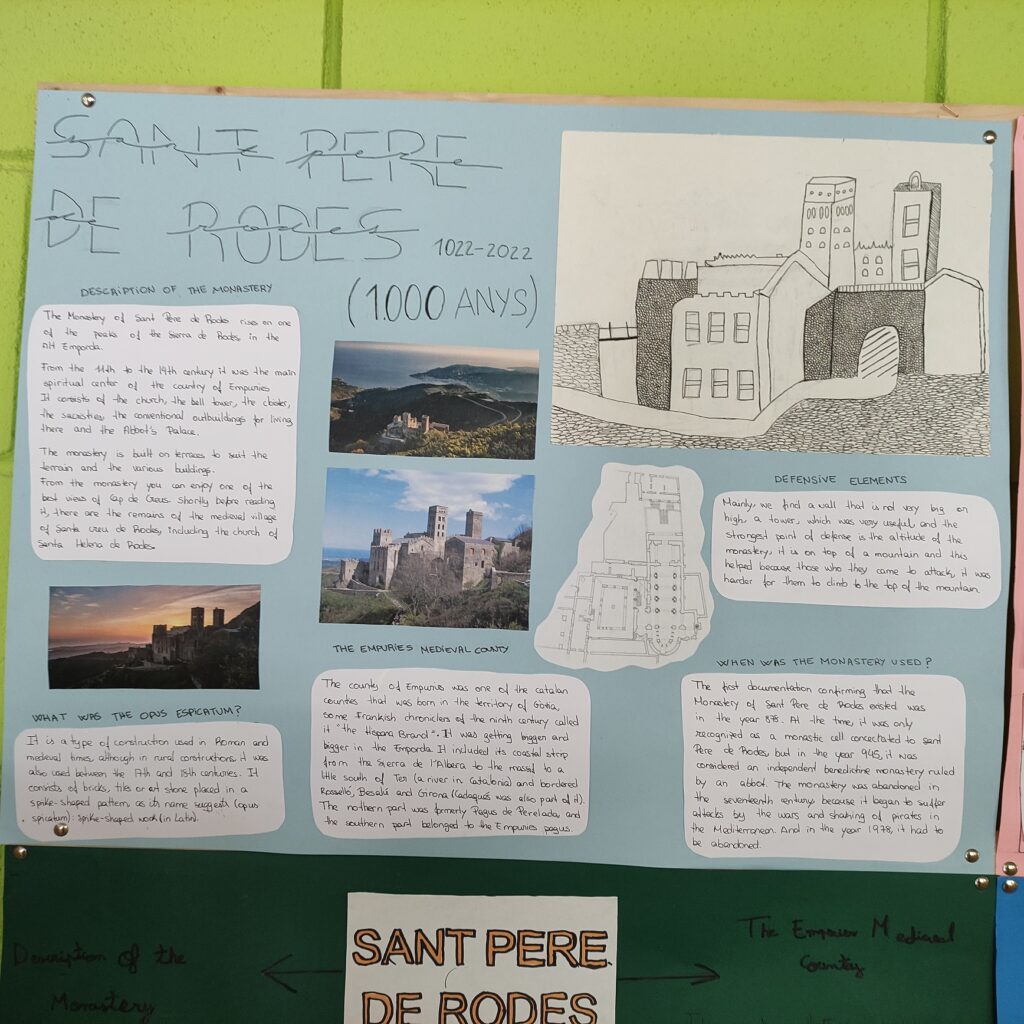 SANT PERE
DE RODES
1022-2022
(1.000 ANYS)
DESCRIPTION OF THE MONASTERY
The Monastery of Sant Pere de Rodes rises on one
of the peaks of the Sierra de Rodes, in the
Alt Emporda.
From the 11th to the 14th century it was the main
spiritual center of the country of Empuries
It consists of the church, the bell tower, the cloister,
the sacristies, the conventional outbuildings for living
there and the Abbot's Palace.
The monastery is built on terraces to suit the
terrain and the various buildings.
From the monastery you can enjoy one of the
best views of Cap de Creus. Shortly before reading
it, there are the remains of the medieval village
of Santa Creu de Rodes, including the church of
Santa Helena de Rodes.
WHAT WAS THE OPUS ESPICATUM?
It is a type of construction used in Roman and
medieval times, although in rural constructions it was
also used between the 17th and 18th centuries. It
consists of bricks, tiles or cut stone placed in a
spike-shaped pattern, as its name suggests (opus
spicatum): spike-shaped work (in Latin).
THE EMPURIES MEDIEVAL COUNTY
The county of Empuries was one of the catalan
counties that was born in the territory of Gòtia,
some Frankish chroniclers of the ninth century called
it "the Hispana Brand". It was getting bigger and
bigger in the Emporda. It included its coastal strip
from the Sierra de l'Albera to the massif to a
little south of Ter (a river in Catalonia) and bordered
Rosselló, Besalú and Girona (Cadaqués was also part of it).
The nothern part was formerly Pagus de Perelada, and
the southern part belonged to the Empuries pagus.
DEFENSIVE ELEMENTS
Mainly, we find a wall that is not very big or
high, a tower, which was very useful, and the
strongest point of defense is the altitude of the
monastery, it is on top of a mountain and this
helped because those who they came to attack, it was
harder for them to climb to the top of the mountain.
WHEN WAS THE MONASTERY USED?
The first documentation confirming that the
Monastery of Sant Pere de Rodes existed was
in the year 878. At the time, it was only
recognized as a monastic cell consecrated to sant
Pere de Rodes, but in the year 945, it was
considered an independent benedictine monastery ruled
by an abbot. The monastery was abandoned in
the seventeenth century because it began to suffer
attacks by the wars and shaking of pirates in
the Mediterranean. And in the year 1978, it had to
be abandoned.
Description of the
Monastery
SANT PERE
DE RODES
The Empuries Medieval
County